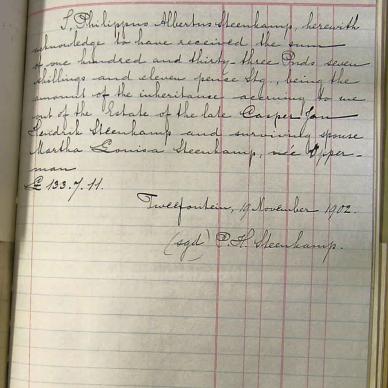 I Philippus Albertus Steenkamp, herewith
acknowledge to have received the sum
of one hundred and thirty-three Pnds seven
shillings and eleven pence Stg, being the
amount of the inheritance accruing to me
out of the Estate of the late Casper Jan
Hendrik Steenkamp and surviving spouse
Martha Louisa Steenkamp, née Opper-
man
£ 133.7.11.
Tweefontein, 19 November 1902.
(sgd) P. H. Steenkamp.